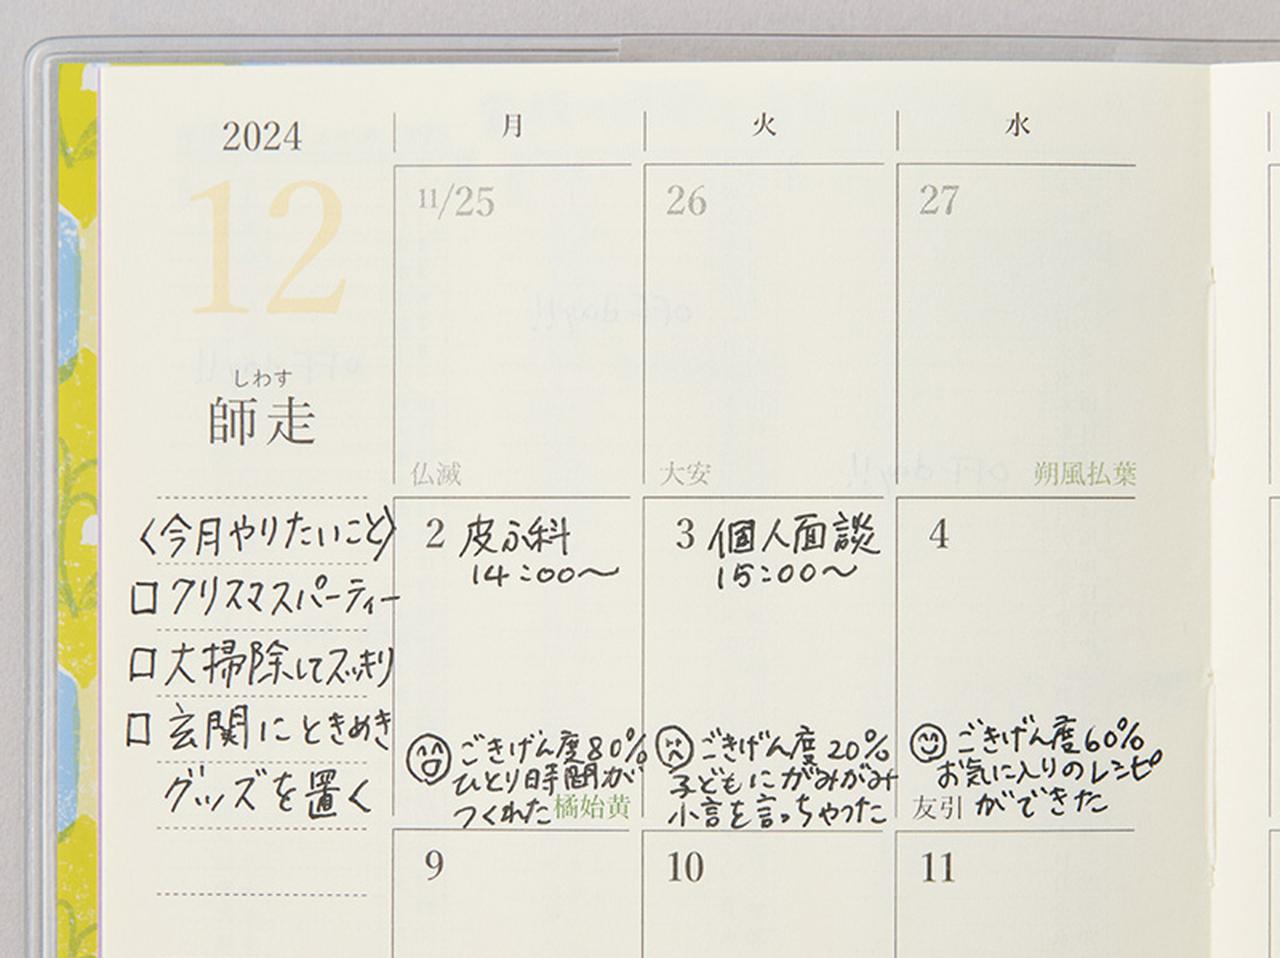 2024
12
しわす
師走
月
火
水
11/25
26
27
仏滅
大安
朔風払葉
〈今月やりたいこと〉
□クリスマスパーティー
□大掃除してスッキリ
□玄関にときめき
グッズを置く
2 皮ふ科
14:00〜
ごきげん度80%
ひとり時間が
つくれた
橘始黄
3 個人面談
15:00〜
ごきげん度20%
子どもにがみがみ
小言を言っちゃった
4
ごきげん度60%
お気に入りのレシピ
ができた
友引
9
10
11
OFF day!!
OFF day!!
OFF day!!